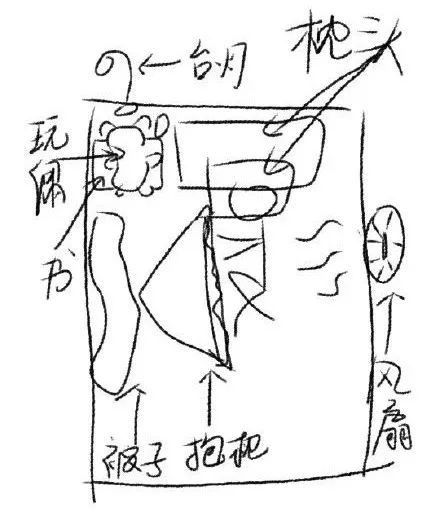 台月
枕头
玩偶
书
被子
抱枕
风扇